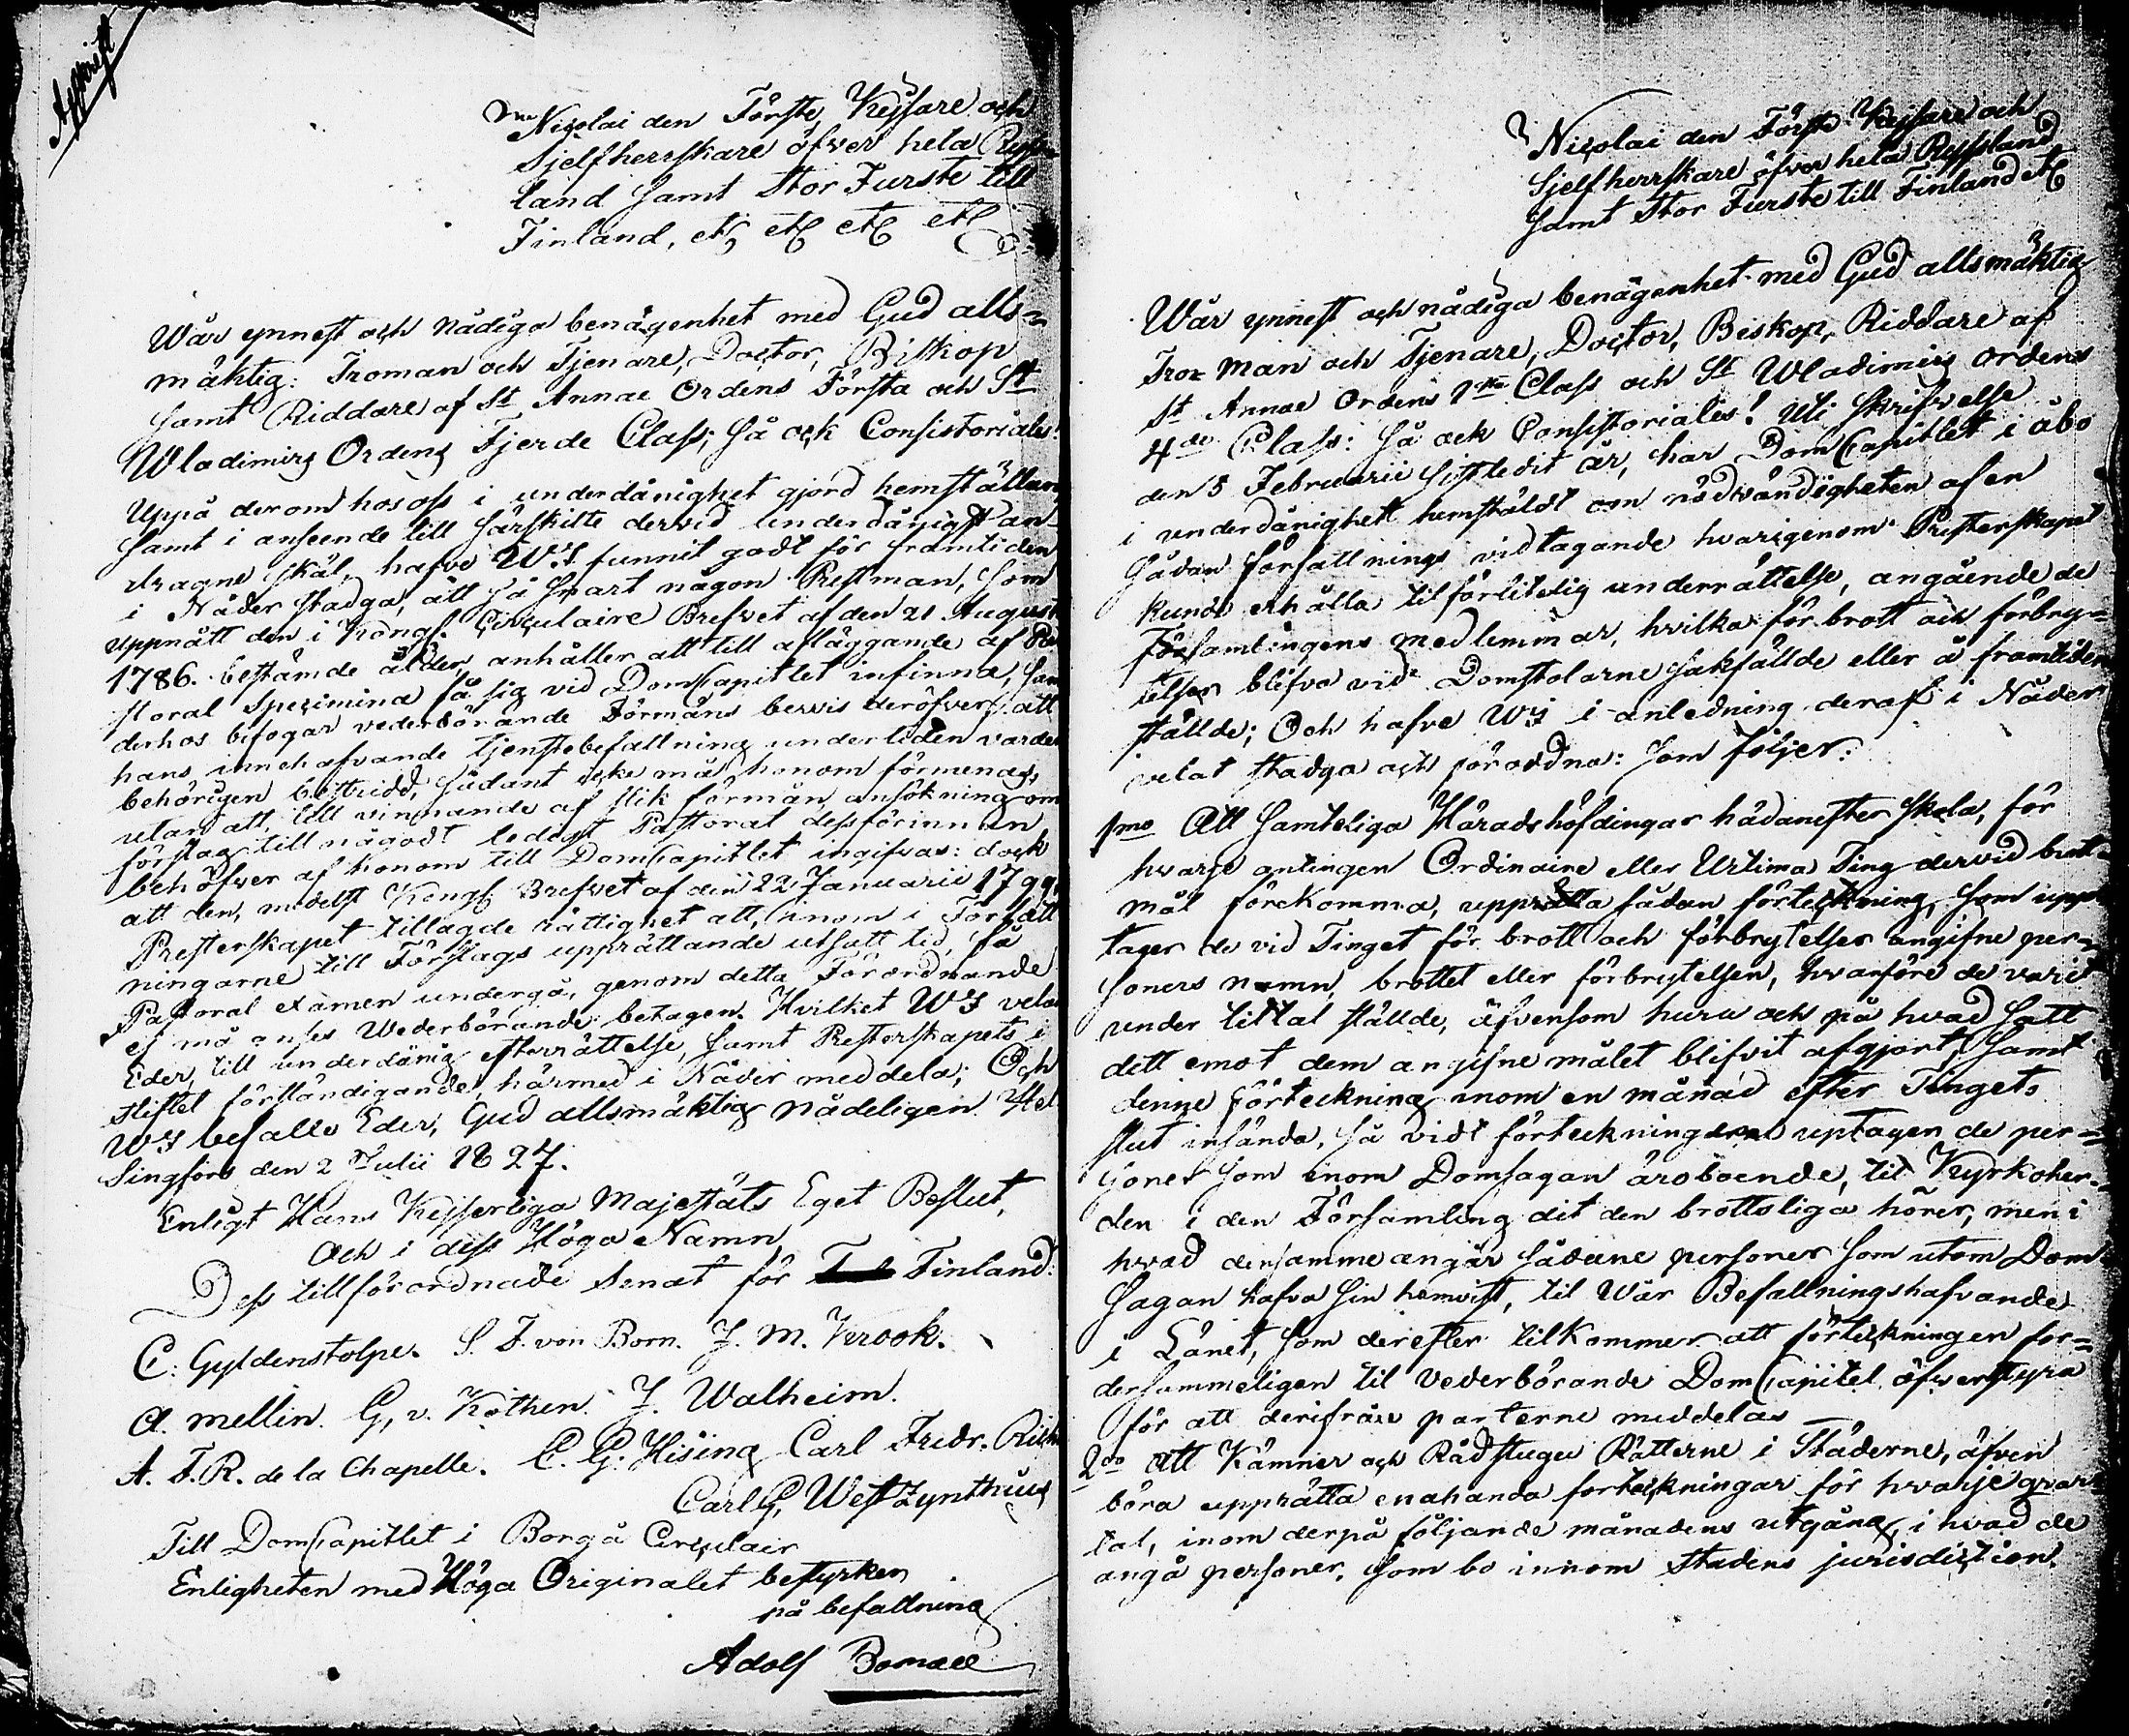 Afskrift
Nicolai den Förste, Kejsare och
Sjelfherrskare öfver hela Ryss
land samt Stor Furste till
Finland, etc etc etc etc
Wår ynnest och nådiga benägenhet med Gud alls=
mäktig: Troman och Tjenare, Doctor, Biskop
samt Riddare af St Annae Ordens Första och St
Wladimirs Ordens Fjerde Class; så ock Consistoriales!
Uppå derom hos oss i underdånighet gjord hemställan
samt i anseende till särskilte dervid underdånigst an=
dragne skäl, hafve WJ funnit godt för framtiden
i Nåder stadga, att så snart någon Prestman, som
uppnått den i Kongl. Circulaire Brefvet af den 21 August
1786. bestämde ålder, anhåller att till afläggande af Pa
storal Specimina få sig vid DomCapitlet infinna, sam
derhos bifogar vederbörande Förmäns bevis deröfver, att
hans innehafvande tjenstebefattning under tiden varder
behörigen bestridd, sådant icke må honom förmenas,
utan att, till vinnande af slik förmån, ansökning om
förslag till någodt ledigt Pastorat dessförinnan
behöfver af honom till DomCapitlet ingifvas: dock
att den, medelst Kongl Brefvet af den 22 Januarii 1799
Presterskapet tillagde rättighet att, innom i Författ
ningarne till Förslags upprättande utsatt tid, få
Pastoral examen undergå, genom detta Förordnande
ej må anses Wederbörande betagen. Hvilket WJ velat
Eder, till underdånig efterrättelse, samt Presterskapets i
Stiftet förständigande, härmed i Nåder meddela; Och
WJ befalle Eder, Gud allsmäktig nådeligen. Hel
singfors den 2 Julii 1827.
Enligt Hans Kejserliga Majestäts Eget Beslut,
och i dess Höga Namn
Dess tillförordnade Senat för Finland:
C. Gyldenstolpe. S. F. von Born. J. M. Krook.
A. Mellin. G, v. Kothen. J. Walheim.
A. F. R. de la Chapelle. C. G. Hising Carl Fredr. Rich
Carl G, Westzynthius
Till DomCapitlet i Borgå Circulair
Enligheten med Höga Originalet bestyrker
på befallning
Adolf
Nicolai den Förste Kejsare och
Sjelfherrskare öfver hela Ryssland
samt Stor Furste till Finland etc
Wår ynnest och nådiga benägenhet med Gud allsmäktig
Tro= Man och Tjenare, Doctor, Biskop, Riddare af
St Annae Ordens 1sta Class och St Wladimirs Ordens
4de Class: så ock Consistoriales! Uti skrifvelse
den 5 Februarii sistledit år, har DomCapitlet i åbo
i underdånighet hemstäldt om nödvändigheten af en
sådan författnings vidtagande hvarigenom Presterskapet
kunde erhålla tilförlitelig underrättelse, angående de
Församlingens medlemmar, hvilka för brott och förbry=
telser blifva vid Domstolarne sakfällde eller å framtiden
ställde; Och hafve WJ i anledning deraf i Nåder
velat stadga och förordna: som följer:
1mo Att samteliga Häradshöfdingar hädanefter skola, för
hvarje antingen Ordinaire eller Urtima Ting dervid brott=
mål förekomma, upprätta sådan förteckning, som upp
tager de vid Tinget för brott och förbrytelser angifne per=
soners namn, brottet eller förbrytelsen, hvarföre de varit
under tiltal ställde, äfvensom huru och på hvad sätt
dett emot dem angifne målet blifvit afgjort, samt
denne förteckning inom en månad efter Tingets
slut insända, så vidt förteckningarne uptager de per=
soner som inom Domsagan äro boende, til Kyrkoher=
den i den Församling dit den brottsliga hörer, men i
hvad densamme angår sådane personer som utom Dom
sagan hafva sin hemvist, til Wår Befallningshafvande
i Länet, som derefter tilkommer att förteckningen for=
dersammeligen til vederbörande DomCapitel öfverstyra
för att derifrån parterne meddelas
2do Att Kämner och Rådstugu Rätterne i Städerne, äfven
böra upprätta enahanda förteckningar för hvarje qvar
tal, inom derpå följande månadens utgång, i hvad de
angå personer, som bo innom Stadens jurisdiction,